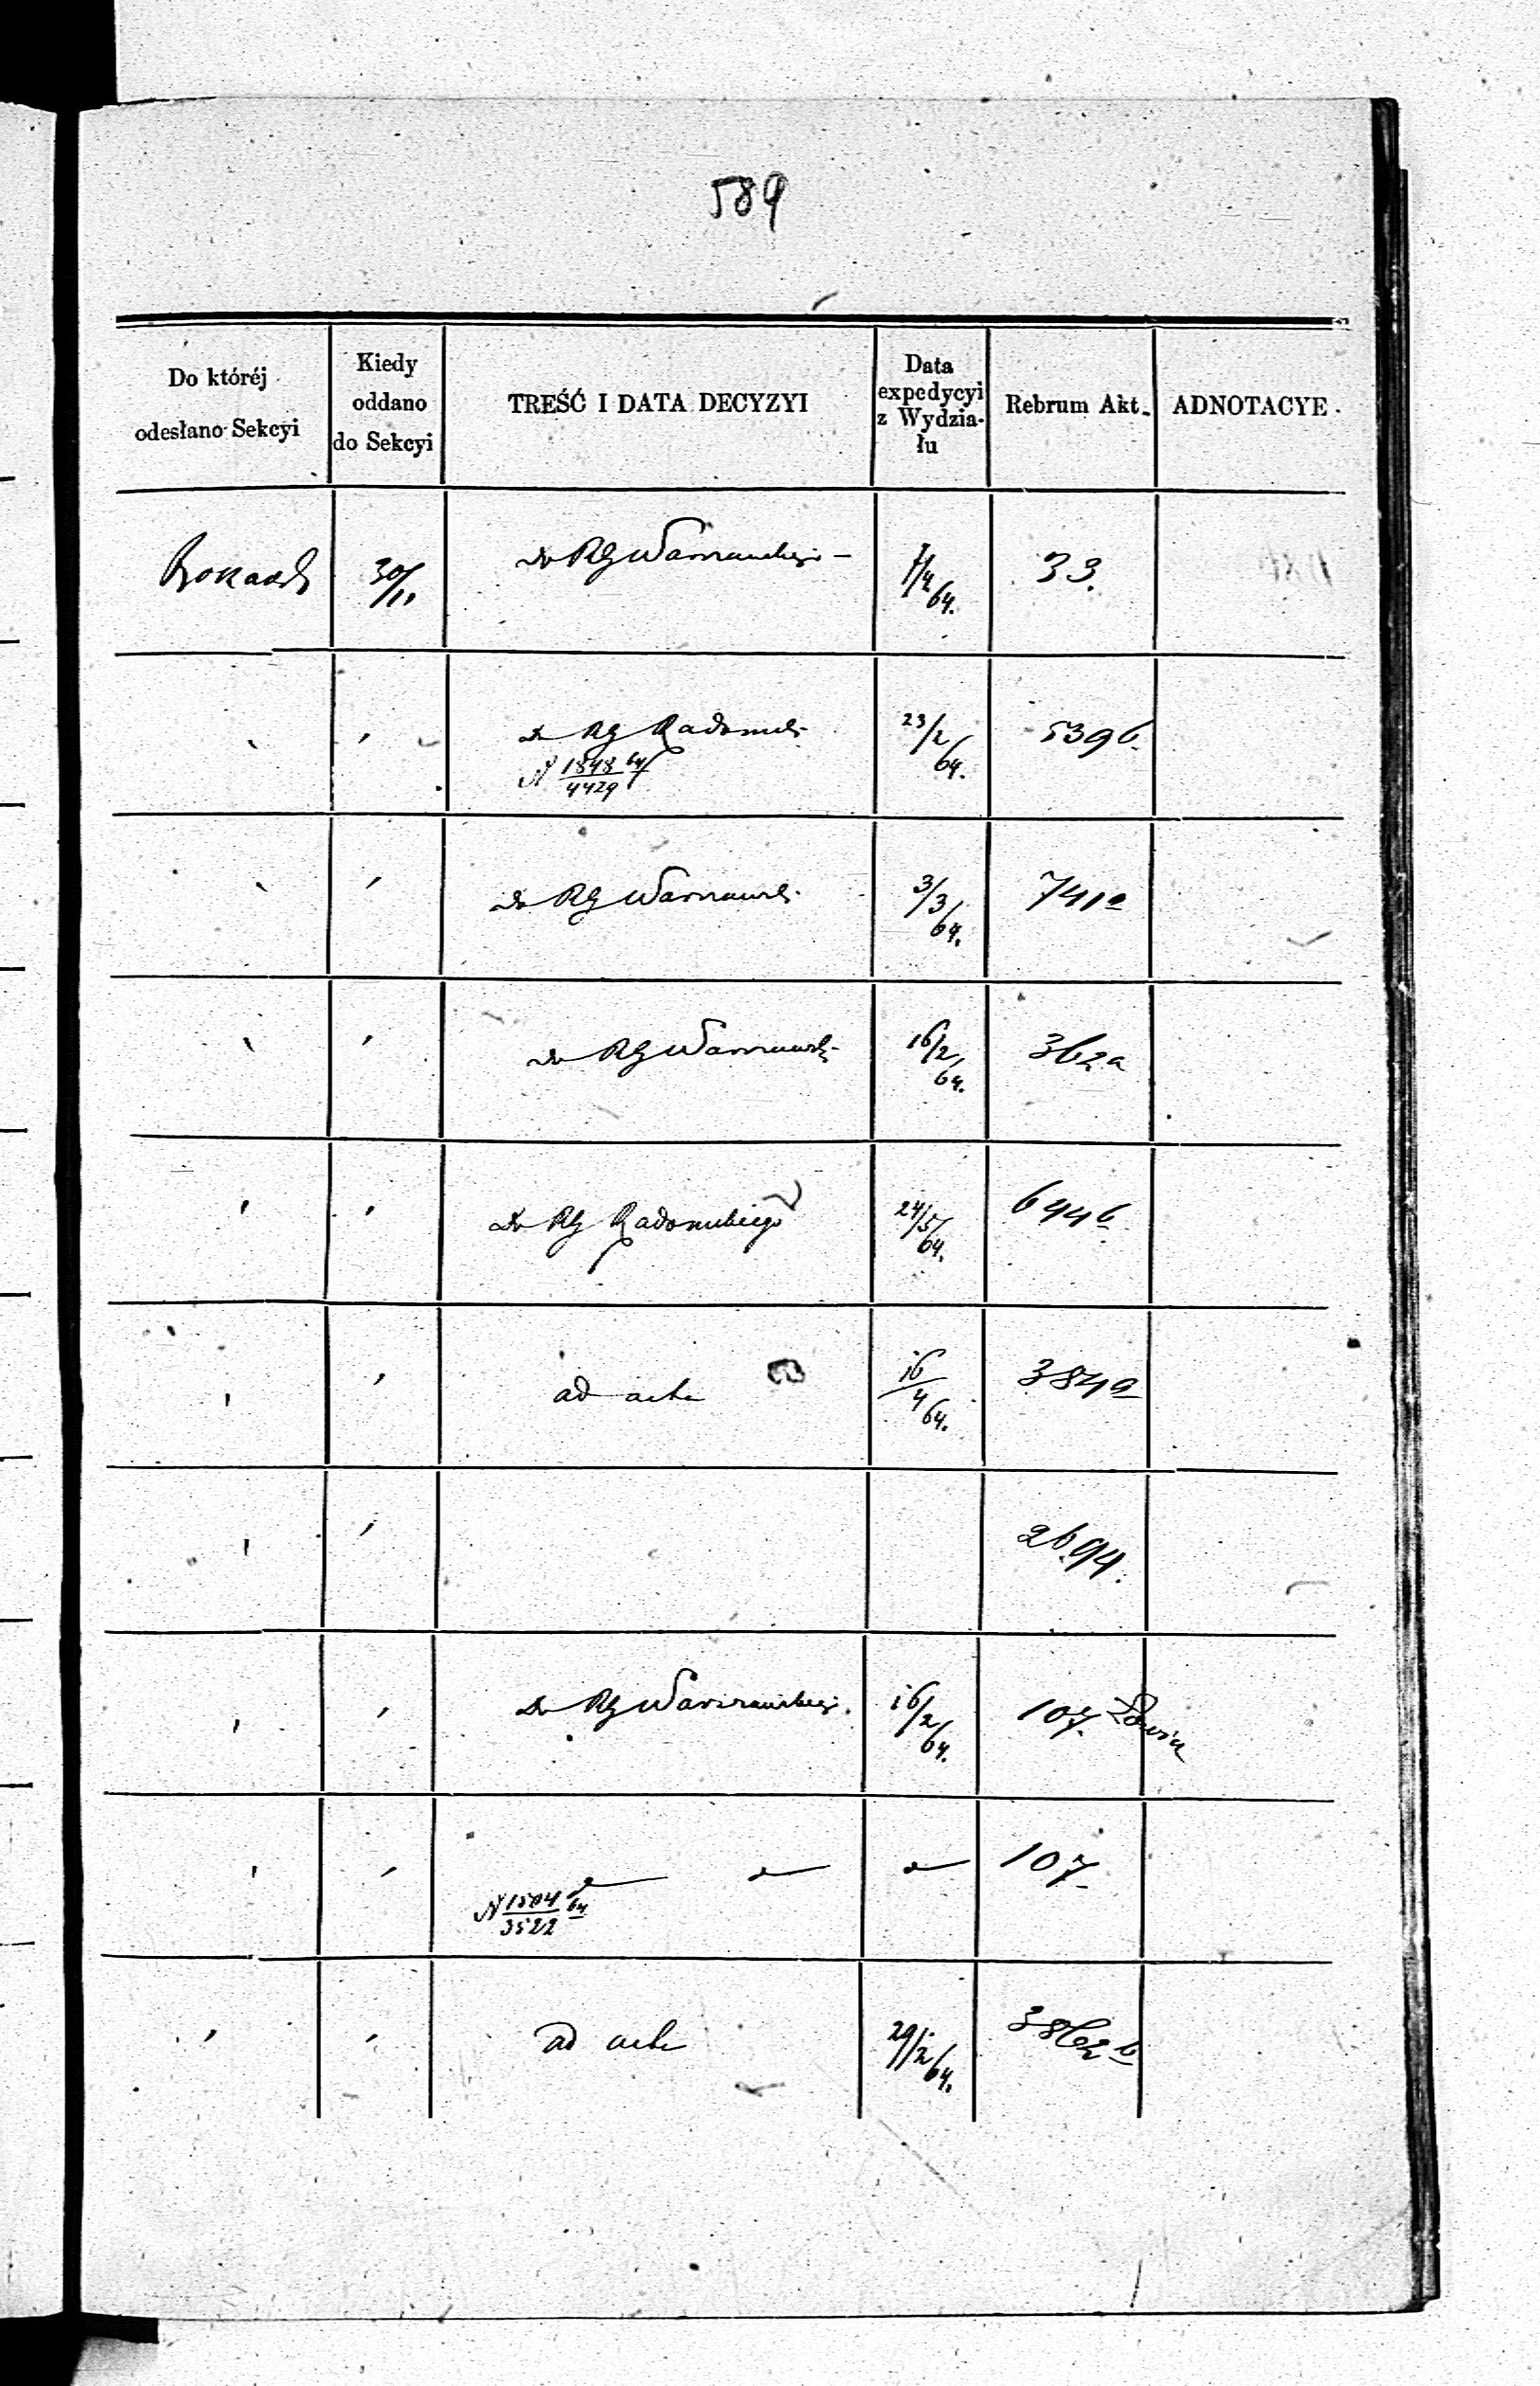 589
Do któréj odesłano Sekcyi
Kiedy oddano do Sekcyi
TREŚĆ I DATA DECYZYI
Data expedycyi z Wydzia-łu
Rebrum Akt.
ADNOTACYE.
30/11 do RG Warszawskiego — /4 64. 33.
" " do RG Radomski 23/2 64. 539b
N 1848/4429 64
" " do RG Warszawski 3/3 64. 741a
" " do RG Warszawski 16/2 64. 362a
" " Do RG Radomskiego 24/5 64. 644b
" " ad acta 16/4 64. 384a
" " 2694.
" " Do RG Warszawskiego 16/2 64. 107.
" " 107
N 1504/3522 64
" " ad acta 29/2 64. 3862b